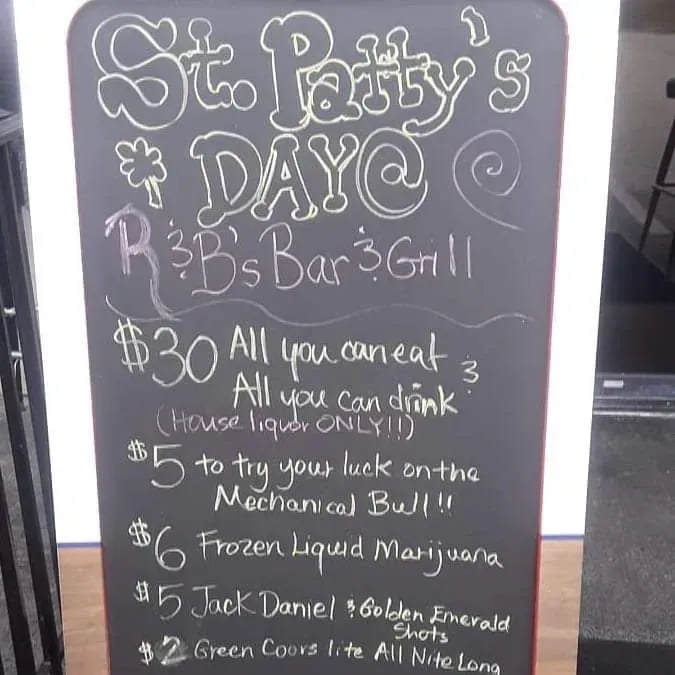 St. Patty's
DAY@
R&B's Bar & Grill
$30 All you can eat &
All you can drink
(House liquor ONLY!!)
$5 to try your luck on the
Mechanical Bull!!
$6 Frozen Liquid Marijuana
$5 Jack Daniel & Golden Emerald
Shots
$2 Green Coors lite All Nite Long